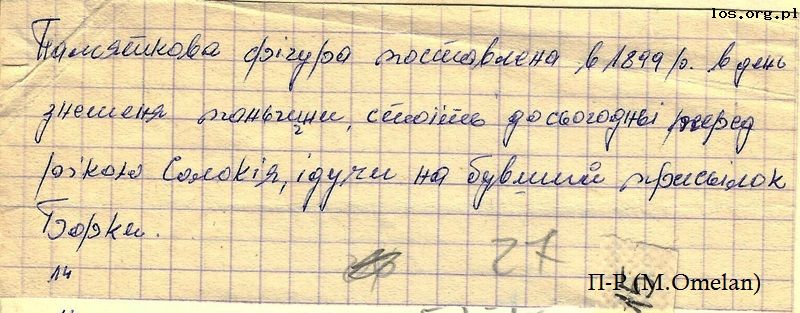 los.org.pl
Памяткова фігура поставлена в 1899 р. в день
знесеня паньщини, стоїть досьогодні перед
рікою Солокія, ідучи на бувший присілок
Борки.
14
27
15
П-Р (M.Omelan)